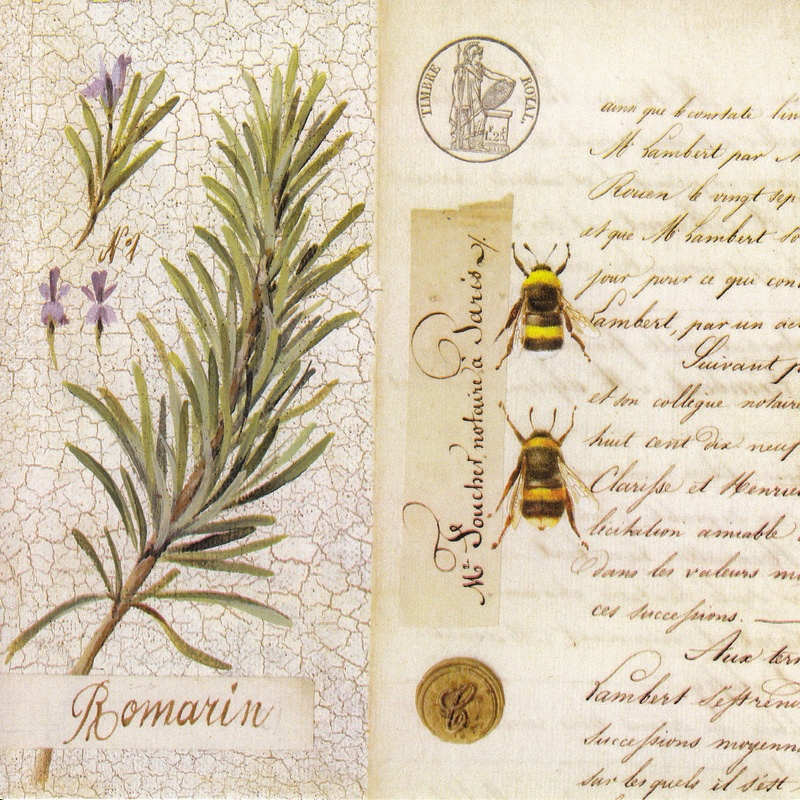 N° 1
Romarin
TIMBRE ROYAL
1F. 25C
Me Foucher notaire à Paris
ainsi que le constate l'in
Mr Lambert par M
Rouen le vingt sep
et que Mr Lambert
jour pour ce qui con
Lambert, par un ac
Suivant p
et son collègue notaire
huit cent dix neuf
Clarisse et Henrie
licitation amiable
dans les valeurs m
ces successions.
Aux ter
Lambert
successions moyenn
sur lesquels il s'est